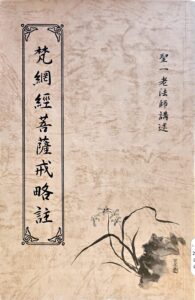 聖一老法師講述
梵網經菩薩戒略註